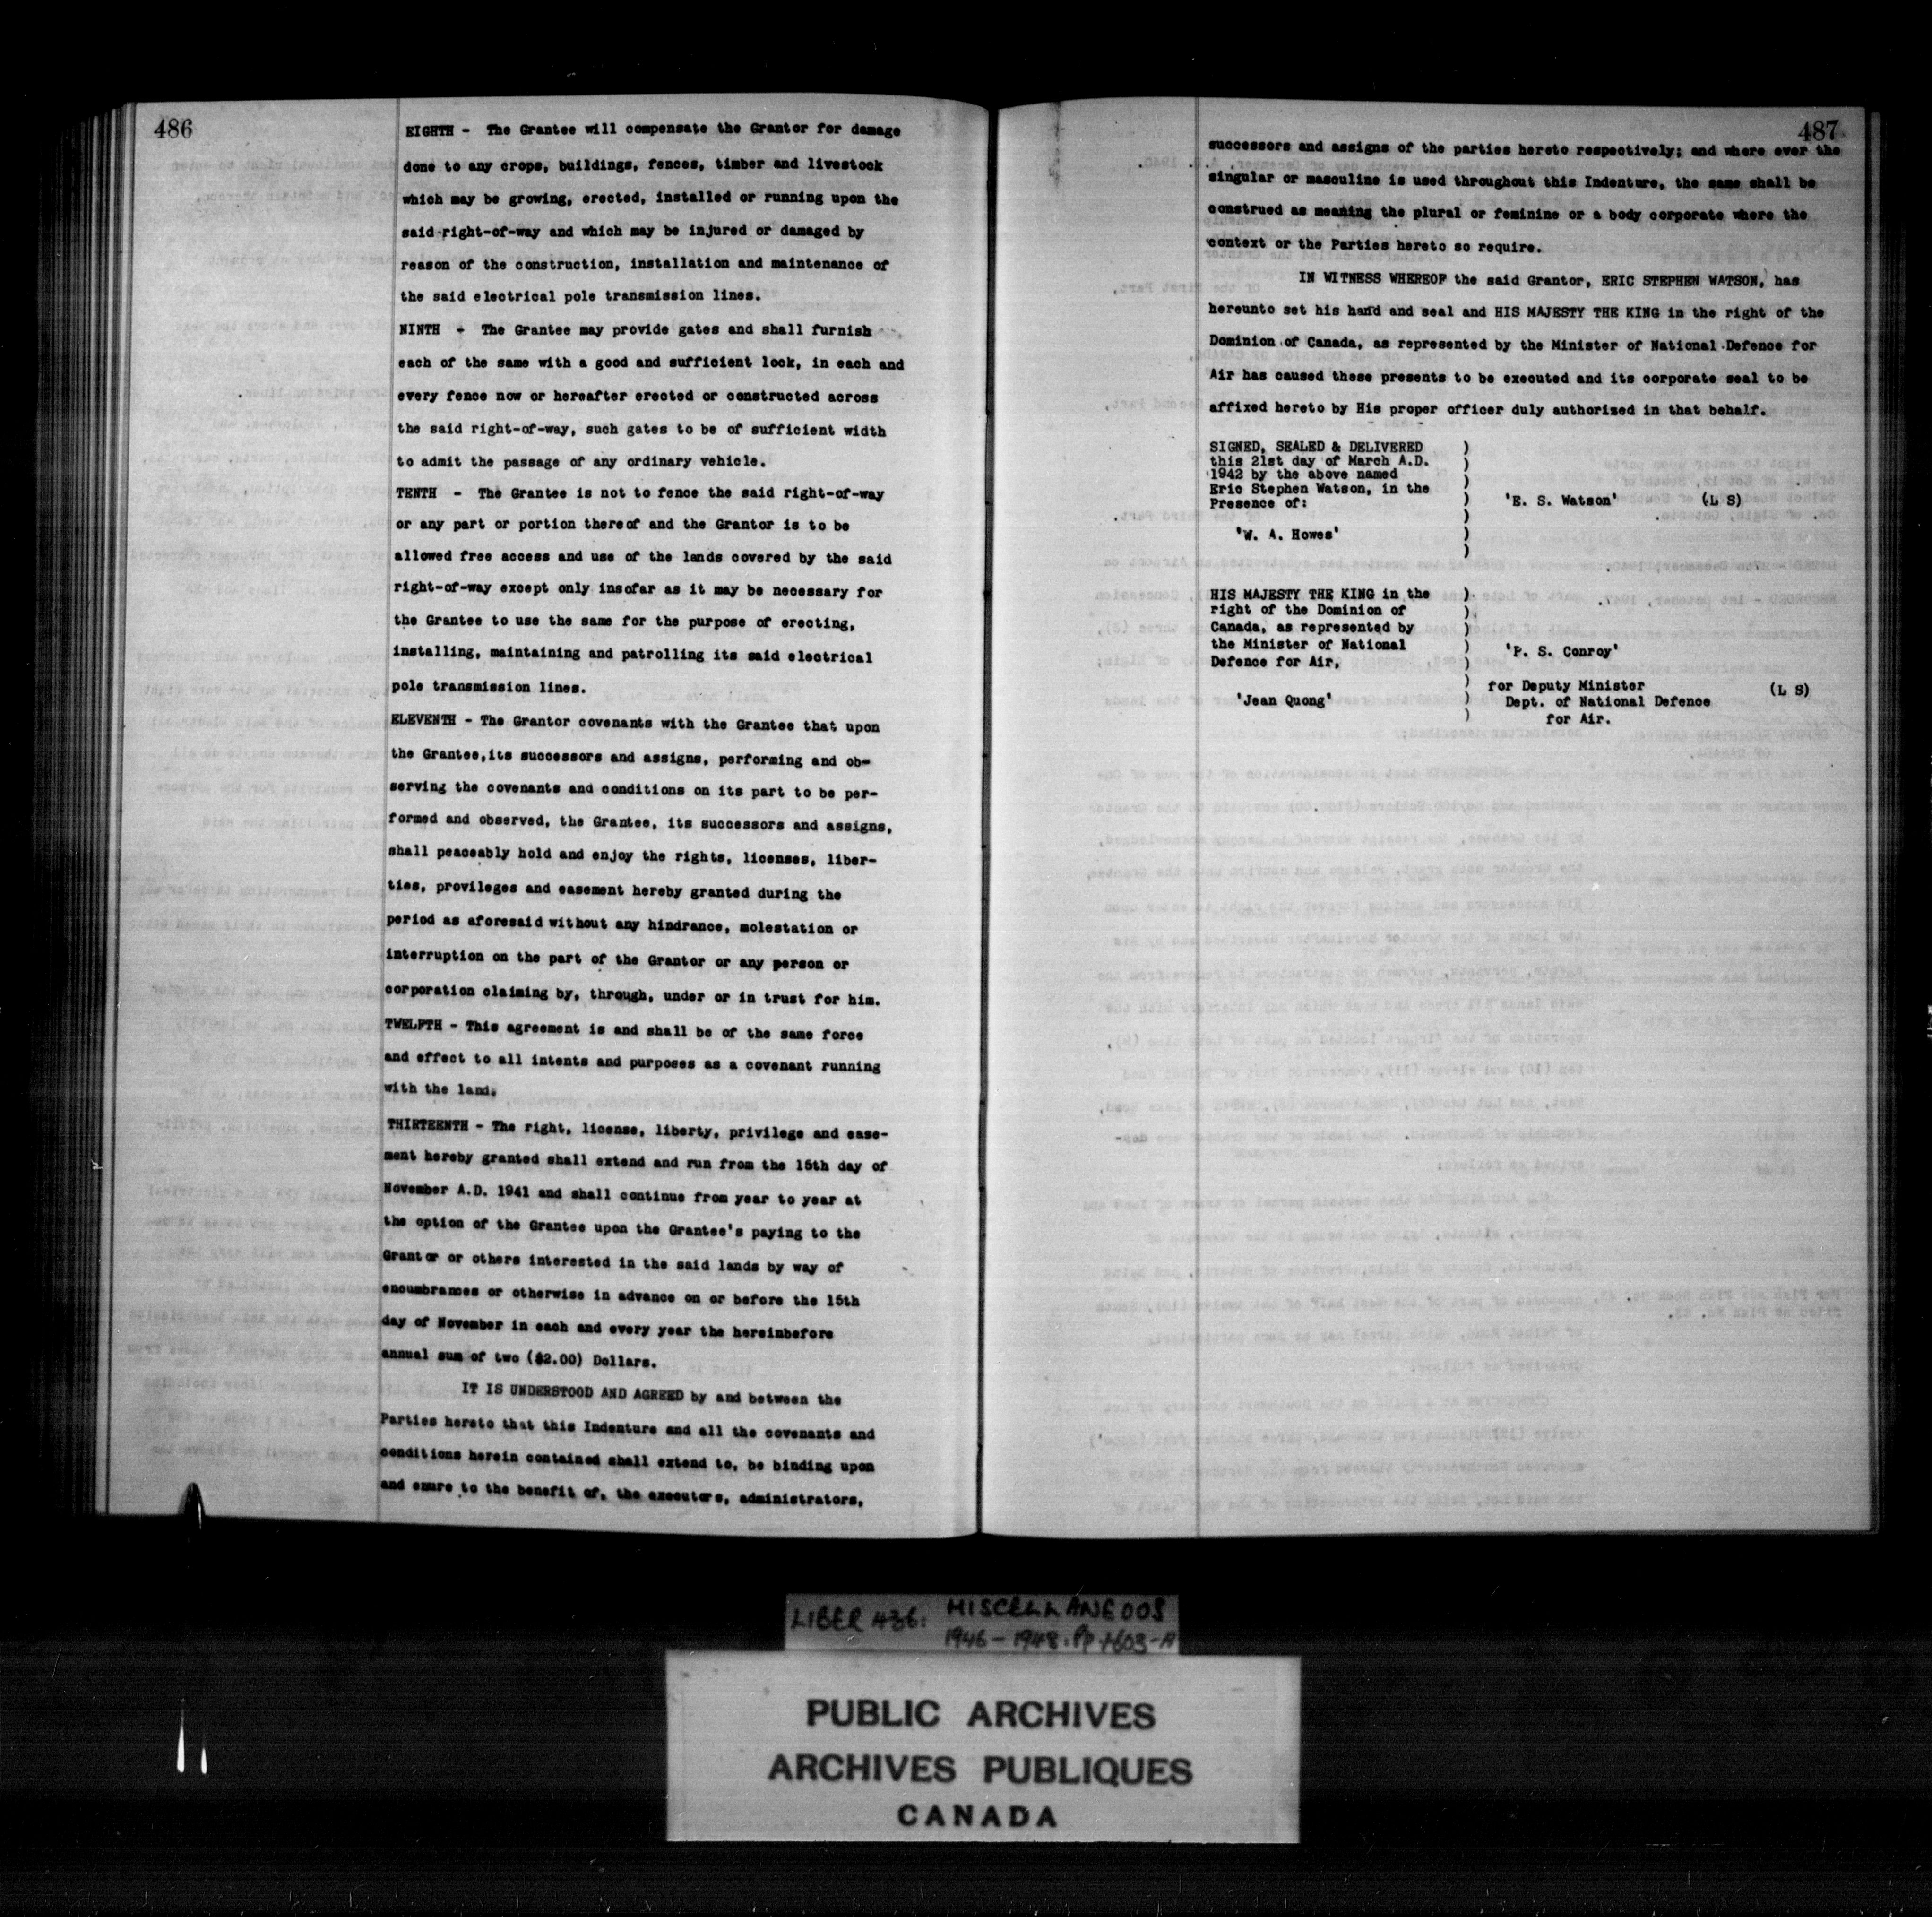 486
EIGHTH - The Grantee will compensate the Grantor for damage
done to any crops, buildings, fences, timber and livestock
which may be growing, erected, installed or running upon the
said right-of-way and which may be injured or damaged by
reason of the construction, installation and maintenance of
the said electrical pole transmission lines.
NINTH - The Grantee may provide gates and shall furnish
each of the same with a good and sufficient lock, in each and
every fence now or hereafter erected or constructed across
the said right-of-way, such gates to be of sufficient width
to admit the passage of any ordinary vehicle.
TENTH - The Grantee is not to fence the said right-of-way
or any part or portion thereof and the Grantor is to be
allowed free access and use of the lands covered by the said
right-of-way except only insofar as it may be necessary for
the Grantee to use the same for the purpose of erecting,
installing, maintaining and patrolling its said electrical
pole transmission lines.
ELEVENTH - The Grantor covenants with the Grantee that upon
the Grantee,its successors and assigns, performing and ob-
serving the covenants and conditions on its part to be per-
formed and observed, the Grantee, its successors and assigns,
shall peaceably hold and enjoy the rights, licenses, liber-
ties, provileges and easement hereby granted during the
period as aforesaid without any hindrance, molestation or
interruption on the part of the Grantor or any person or
corporation claiming by, through, under or in trust for him.
TWELFTH - This agreement is and shall be of the same force
and effect to all intents and purposes as a covenant running
with the land.
THIRTEENTH - The right, license, liberty, privilege and ease-
ment hereby granted shall extend and run from the 15th day of
November A.D. 1941 and shall continue from year to year at
the option of the Grantee upon the Grantee's paying to the
Grantor or others interested in the said lands by way of
encumbrances or otherwise in advance on or before the 15th
day of November in each and every year the hereinbefore
annual sum of two ($2.00) Dollars.
IT IS UNDERSTOOD AND AGREED by and between the
Parties hereto that this Indenture and all the covenants and
conditions herein contained shall extend to, be binding upon
and enure to the benefit of, the executors, administrators,
487
successors and assigns of the parties hereto respectively; and where ever the
singular or masculine is used throughout this Indenture, the same shall be
construed as meaning the plural or feminine or a body corporate where the
context or the Parties hereto so require.
IN WITNESS WHEREOF the said Grantor, ERIC STEPHEN WATSON, has
hereunto set his hand and seal and HIS MAJESTY THE KING in the right of the
Dominion of Canada, as represented by the Minister of National Defence for
Air has caused these presents to be executed and its corporate seal to be
affixed hereto by His proper officer duly authorized in that behalf.
SIGNED, SEALED & DELIVERED )
this 21st day of March A.D. )
1942 by the above named )
Eric Stephen Watson, in the )
Presence of: ) 'E. S. Watson' (L S)
)
'W. A. Howes' )
)
HIS MAJESTY THE KING in the )
right of the Dominion of )
Canada, as represented by )
the Minister of National ) 'P. S. Conroy'
Defence for Air, )
) for Deputy Minister (L S)
'Jean Quong' ) Dept. of National Defence
) for Air.
LIBER 436: MISCELLANEOUS
1946-1948. Pp.1-603-A
PUBLIC ARCHIVES
ARCHIVES PUBLIQUES
CANADA